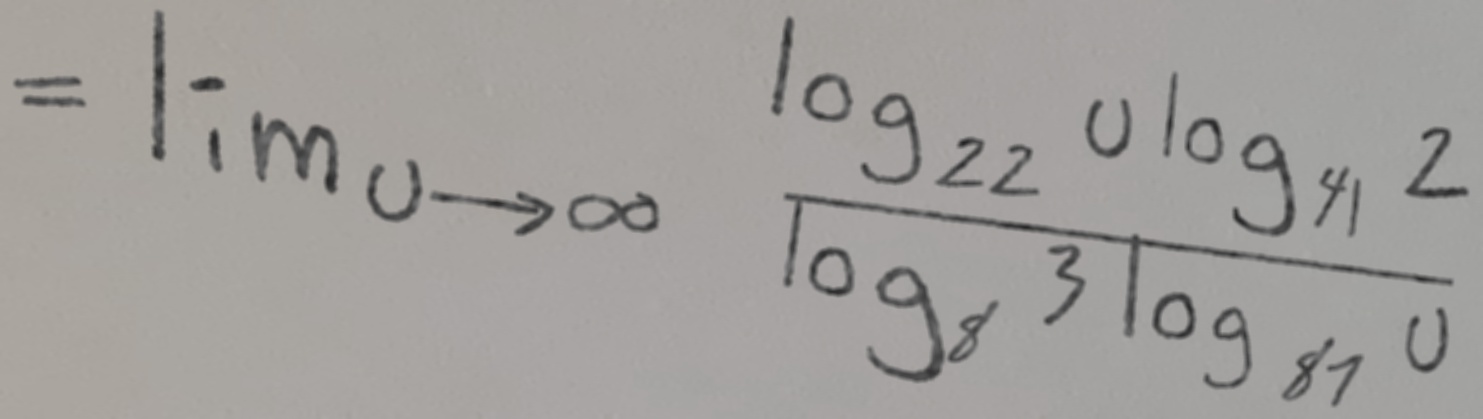 = lim_{u→∞} \frac{log_{22} u log_{41} 2}{log_8 3 log_{81} u}